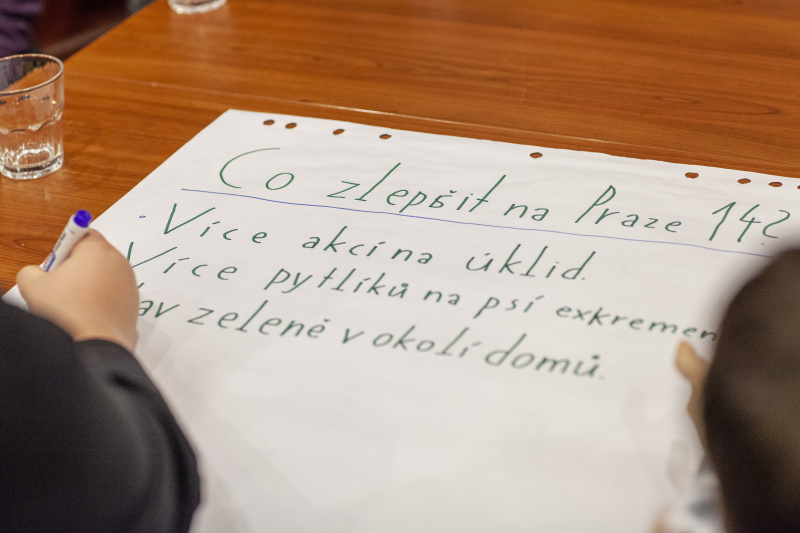 Co zlepšit na Praze 14?
Více akcí na úklid.
Více pytlíků na psí
zeleně v okolí domů.